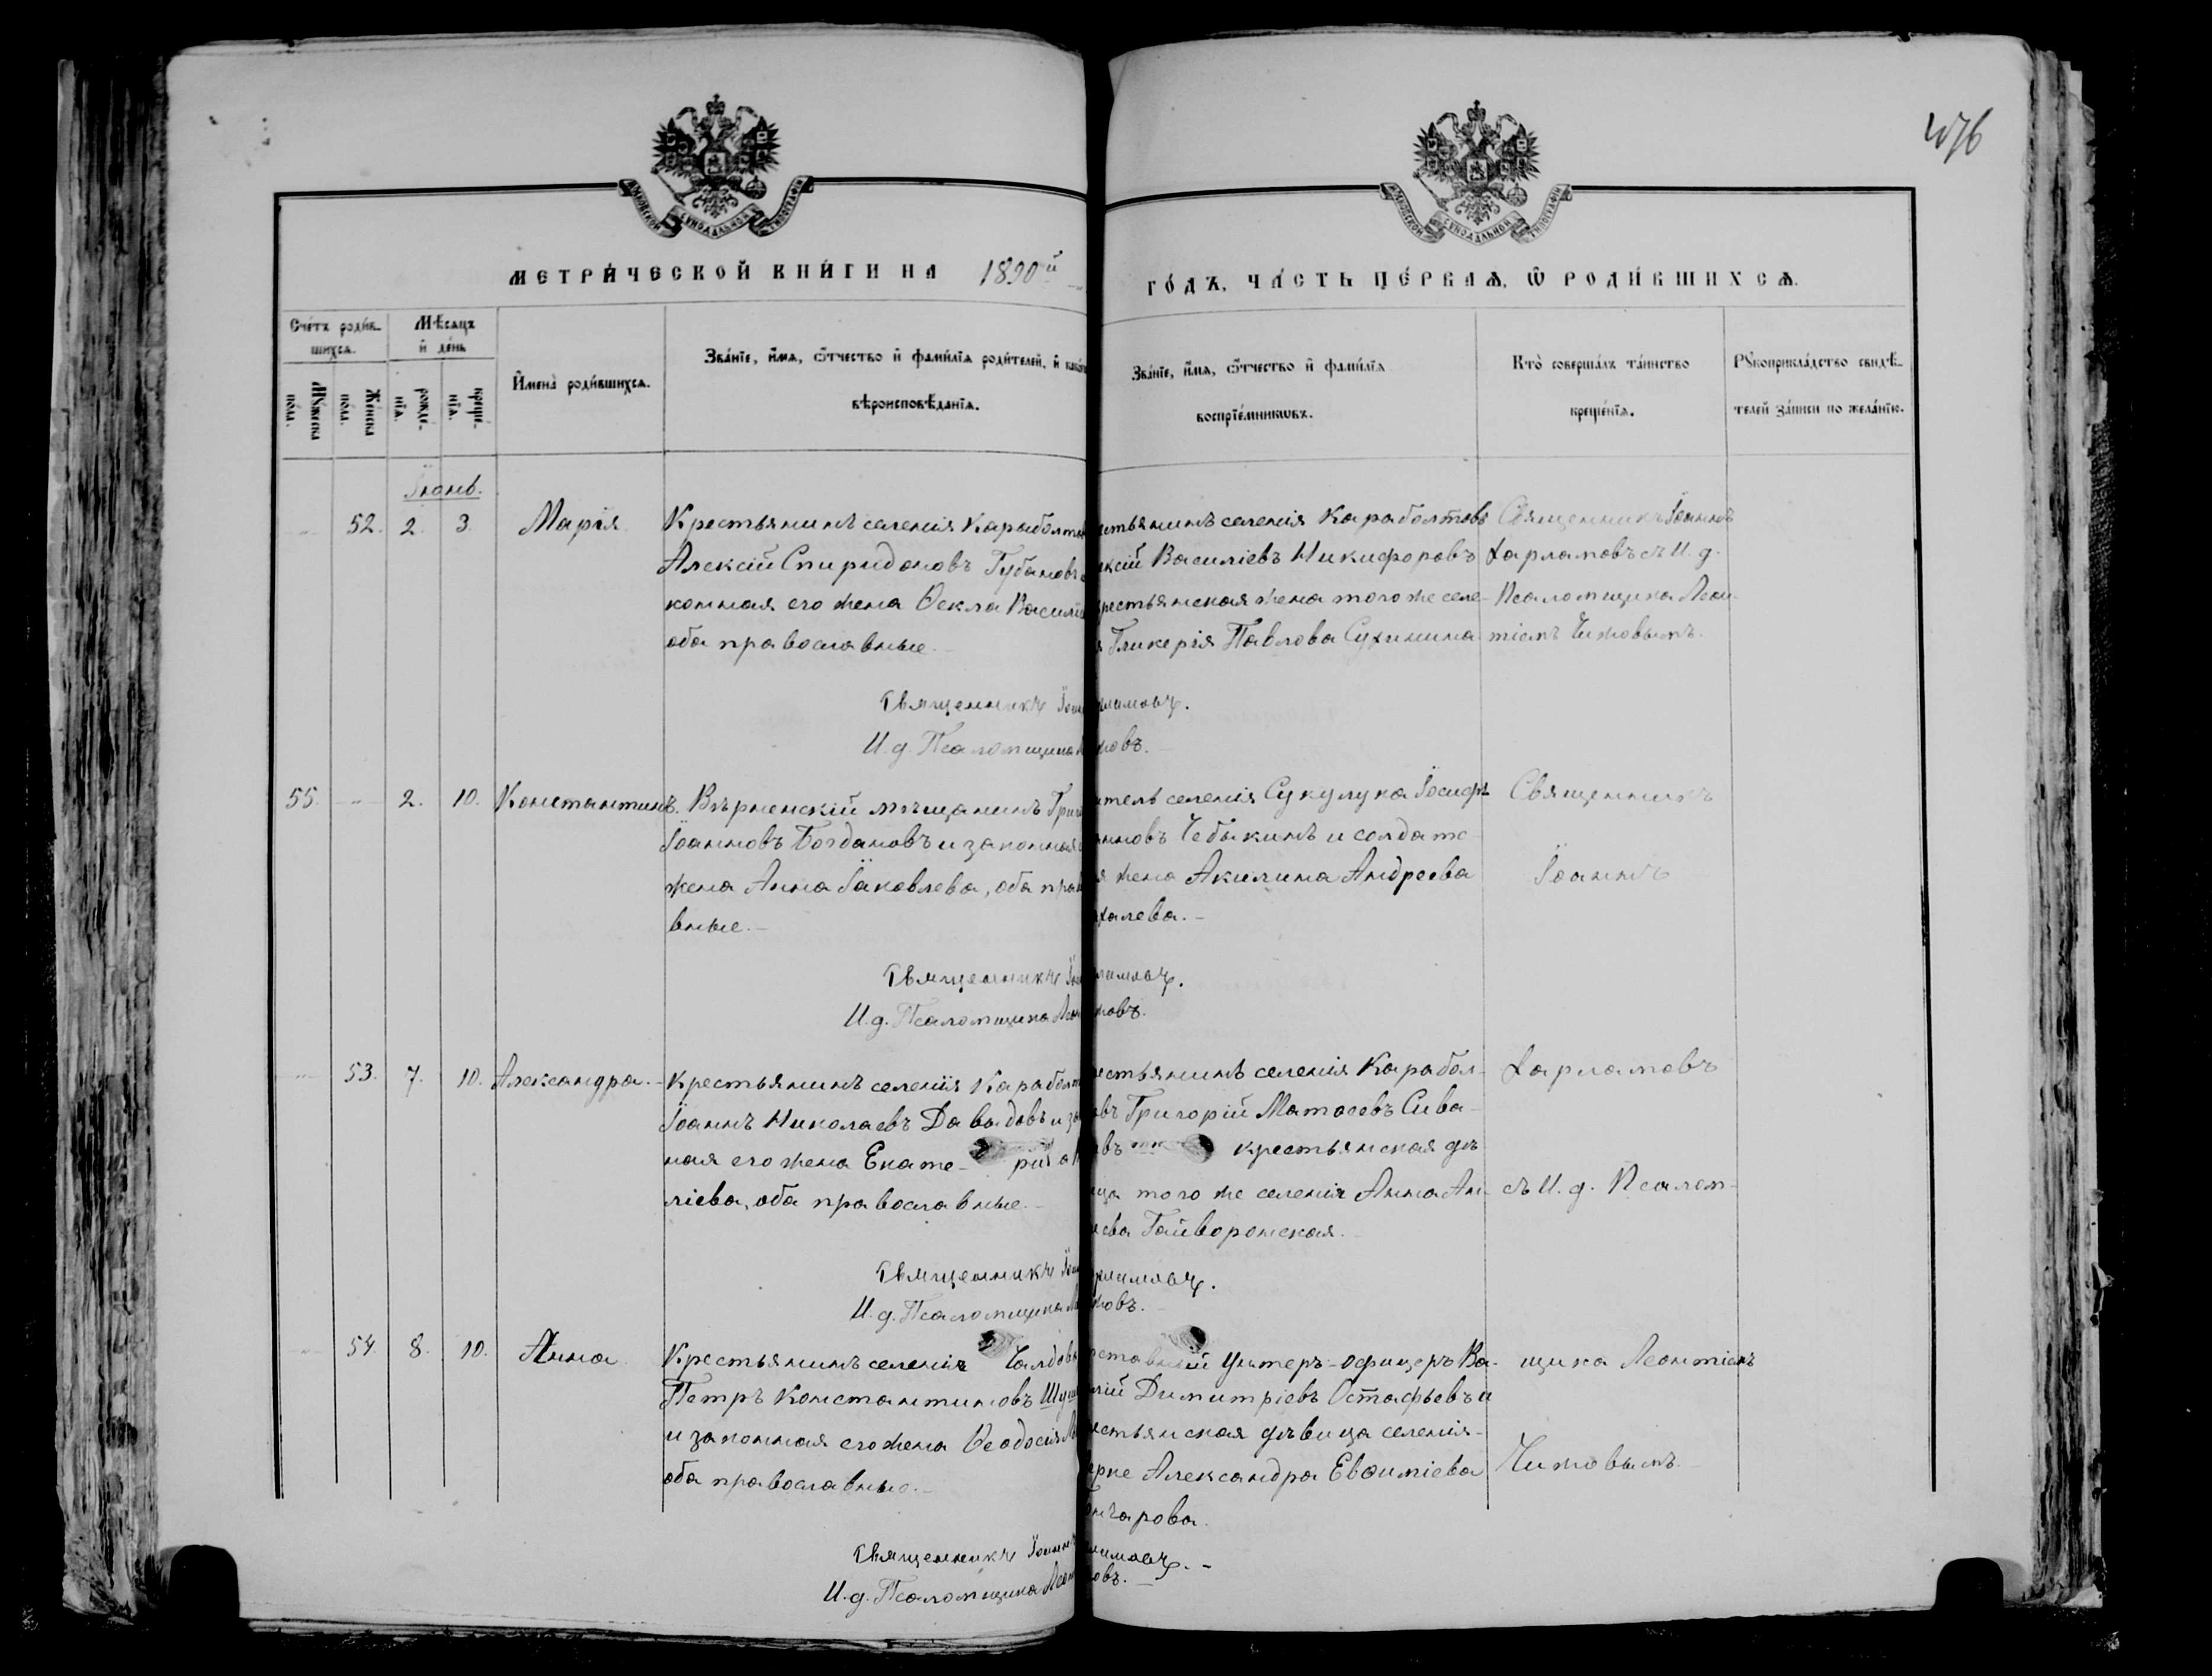 МЕТРИ́ЧЕСКОЙ КНИ́ГИ НА 1890й
ГО́ДЪ, ЧА́СТЬ ПЕ́РВАѦ, Ѿ РОДИ́ВШИХСѦ.
476
Сче́тъ роди́в-
шихсѧ.
Мѣ́сѧцъ
и҆ де́нь
И҆мена̀ роди́вшихсѧ.
Зва́нїе, и҆́мѧ, ѻ҆́тчество и҆ фами́лїѧ роди́телей, и҆
вѣроисповѣ́данїѧ.
Зва́нїе, и҆́мѧ, ѻ҆́тчество и҆ фами́лїѧ
воспрїе́мникѡвъ.
Кто̀ соверша́лъ та́инство
креще́нїѧ.
Рꙋкоприкла́дство свидѣ́-
телей за́писи по жела́нїю.
Мꙋ́жеска
по́ла.
Же́нска
по́ла.
рожде́-
нїѧ.
креще́-
нїѧ.
Іюнь.
52. 2. 3. Марія
Крестьянинъ селенія Караболт
Алексій Спиридоновъ Губановъ
конная его жена Ѳекла Василі
оба православные.-
стьянинъ селенія Караболтовъ
ксій Василіевъ Никифоровъ
рестьянская жена того же селе-
я Гликерія Павлова Сухинина
Священникъ Іоаннъ
Харламовъ съ И. д.
Псаломщика Леон-
тіемъ Чижовымъ.
Священникъ Іоан
ламовъ.
И. д. Псаломщика
жовъ.-
55. -"- 2. 10. Константинъ.
Вѣрненскій мѣщанинъ Григ
Іоанновъ Богдановъ и законная
жена Анна Іаковлева, оба прав
вные.-
итель селенія Сукулука Іосифъ
анновъ Чебыкинъ и солдатс-
я жена Акилина Андреева
халева.-
Священникъ
Іоаннъ
Священникъ Іоа
ламовъ.
И. д. Псаломщика Леон
жовъ.
53. 7. 10. Александра.-
Крестьянинъ селенія Караболт
Іоаннъ Николаевъ Давыдовъ и за
ная его жена Екате- ри
ліева, оба православные.-
естьянинъ селенія Карабол-
овъ Григорій Матѳеевъ Сива-
овъ крестьянская дѣ
ица того же селенія Анна Ан-
ева Гайворонская.-
Харламовъ
съ И. д. Псалом-
Священникъ Іоан
рламовъ.
И. д. Псаломщика
жовъ.-
54. 8. 10. Анна
Крестьянинъ селенія Чалдовъ
Петръ Константиновъ
и законная его жена Ѳеодосія
оба православные.-
ставный унтеръ-офицеръ Ва-
илій Димитріевъ Остафьевъ и
естьянская дѣвица селенія-
Александра Евѳиміева
нчарова.
щика Леонтіемъ
Чижовымъ.-
Священникъ Іоаннъ
ламовъ.-
И. д. Псаломщика Леон
овъ.-